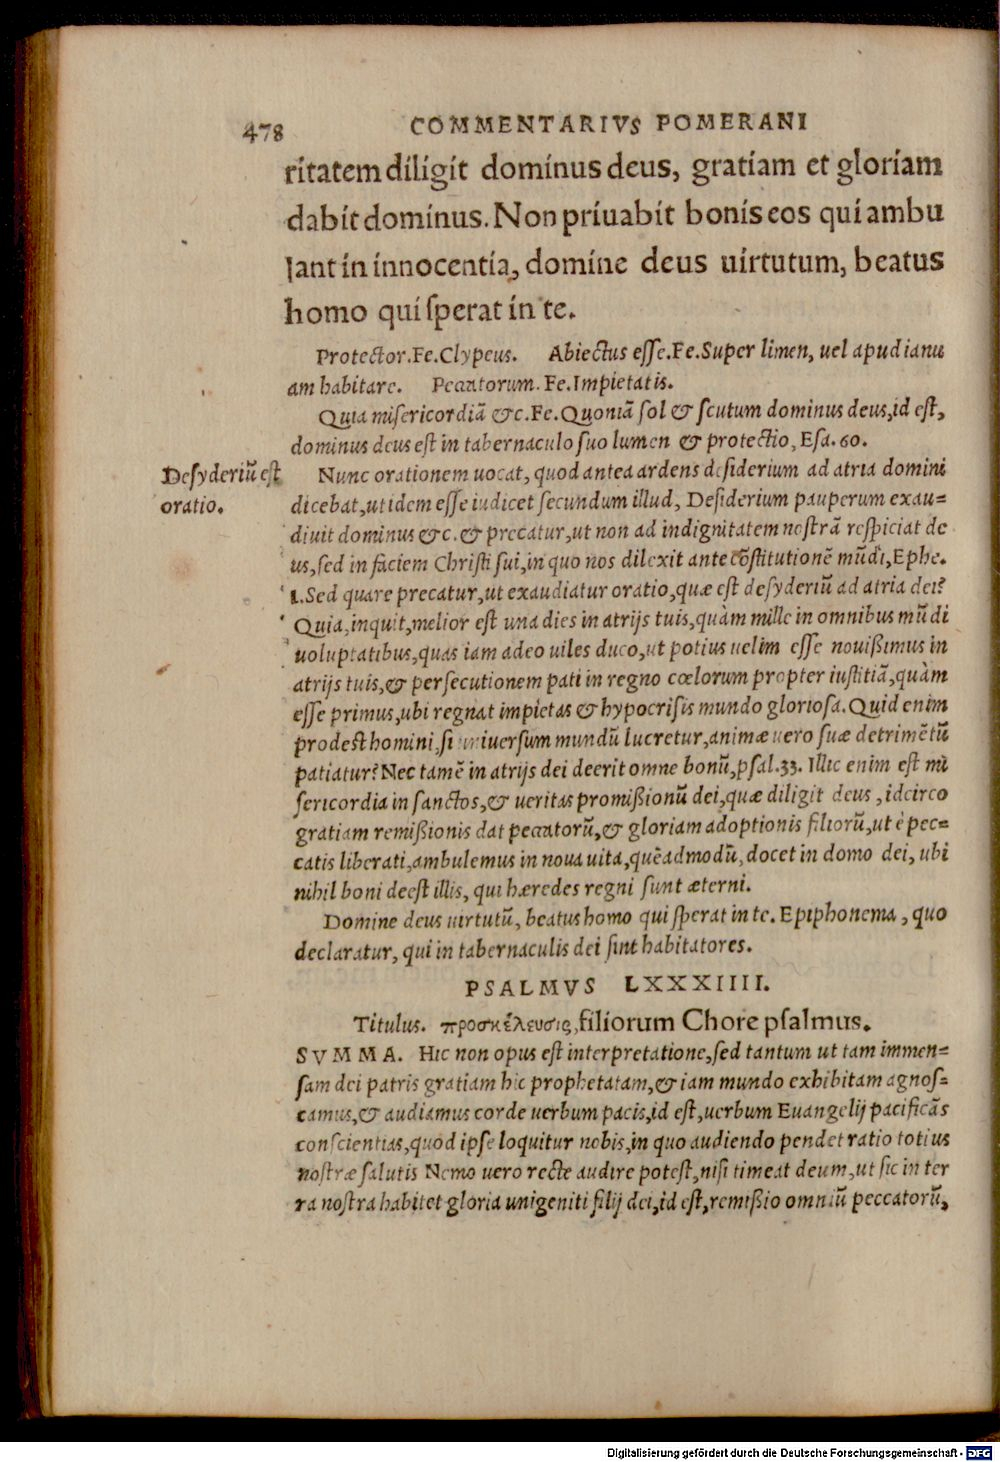 478 COMMENTARIVS POMERANI
ritatem diligit dominus deus, gratiam et gloriam
dabit dominus. Non priuabit bonis eos qui ambu
lant in innocentia, domine deus uirtutum, beatus
homo qui sperat in te.
Protector. Fe. Clypeus. Abiectus esse. Fe. Super limen, uel apud ianu
am habitare. Peccatorum. Fe. Impietatis.
Quia misericordiā &c. Fe. Quoniā sol & scutum dominus deus, id est,
dominus deus est in tabernaculo suo lumen & protectio, Esa. 60.
Desyderiū est
oratio.
Nunc orationem uocat, quod antea ardens desiderium ad atria domini
dicebat, ut idem esse iudicet secundum illud, Desiderium pauperum exau=
diuit dominus &c. & precatur, ut non ad indignitatem nostrā respiciat de
us, sed in faciem Christi sui, in quo nos dilexit ante cōstitutionē mūdi, Ephe.
1. Sed quare precatur, ut exaudiatur oratio, quæ est desyderiū ad atria dei?
Quia, inquit, melior est una dies in atrijs tuis, quàm mille in omnibus mūdi
uoluptatibus, quas iam adeo uiles duco, ut potius uelim esse nouißimus in
atrijs tuis, & persecutionem pati in regno cœlorum propter iustitiā, quàm
esse primus, ubi regnat impietas & hypocrisis mundo gloriosa. Quid enim
prodest homini, si uniuersum mundū lucretur, animæ uero suæ detrimētū
patiatur? Nec tamē in atrijs dei deerit omne bonū, psal. 33. Illic enim est mi
sericordia in sanctos, & ueritas promißionū dei, quæ diligit deus, idcirco
gratiam remißionis dat peccatorū, & gloriam adoptionis filiorū, ut è pec=
catis liberati, ambulemus in noua uita, quēadmodū, docet in domo dei, ubi
nihil boni deest illis, qui hæredes regni sunt æterni.
Domine deus uirtutū, beatus homo qui sperat in te. Epiphonema, quo
declaratur, qui in tabernaculis dei sint habitatores.
PSALMVS LXXXIIII.
Titulus. προσκέλευσις, filiorum Chore psalmus.
SVMMA. Hic non opus est interpretatione, sed tantum ut tam immen=
sam dei patris gratiam hic prophetatam, & iam mundo exhibitam agnos=
camus, & audiamus corde uerbum pacis, id est, uerbum Euangelij pacificās
conscientias, quod ipse loquitur nobis, in quo audiendo pendet ratio totius
nostræ salutis Nemo uero recte audire potest, nisi timeat deum, ut sic in ter
ra nostra habitet gloria unigeniti filij dei, id est, remißio omniū peccatorū,
Digitalisierung gefördert durch die Deutsche Forschungsgemeinschaft - DFG